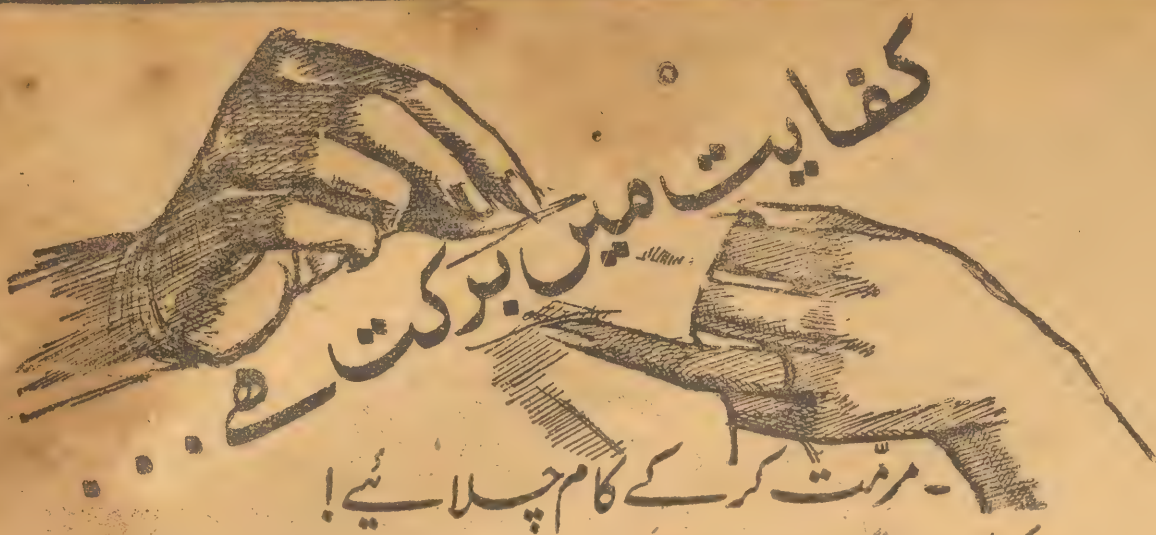 کفایت میں برکت ہے...
- مرمّت کر کے کام چلائیے!